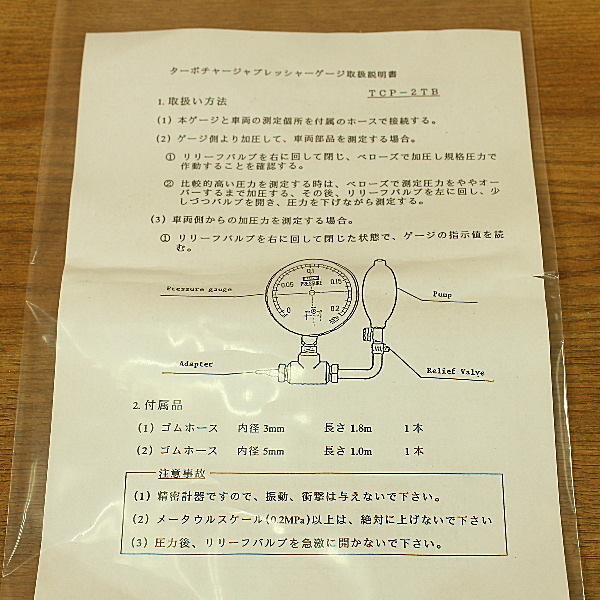 ターボチャージャプレッシャーゲージ取扱説明書
TCP-2TB
1. 取扱い方法
(1) 本ゲージと車両の測定個所を付属のホースで接続する。
(2) ゲージ側より加圧して、車両部品を測定する場合。
① リリーフバルブを右に回して閉じ、ベローズで加圧し規格圧力で
作動することを確認する。
② 比較的高い圧力を測定する時は、ベローズで測定圧力をややオー
バーするまで加圧する、その後、リリーフバルブを左に回し、少
しづつバルブを開き、圧力を下げながら測定する。
(3) 車両側からの加圧力を測定する場合。
① リリーフバルブを右に回して閉じた状態で、ゲージの指示値を読
む。
Pressure gauge
0.1
PRESSURE
0.05
0.15
0
0.2
MPa
Pump
Adapter
Relief Valve
2. 付属品
(1) ゴムホース 内径 3mm 長さ 1.8m 1本
(2) ゴムホース 内径 5mm 長さ 1.0m 1本
注意事故
(1) 精密計器ですので、振動、衝撃は与えないで下さい。
(2) メータウルスケール(0.2MPa)以上は、絶対に上げないで下さい
(3) 圧力後、リリーフバルブを急激に開かないで下さい。